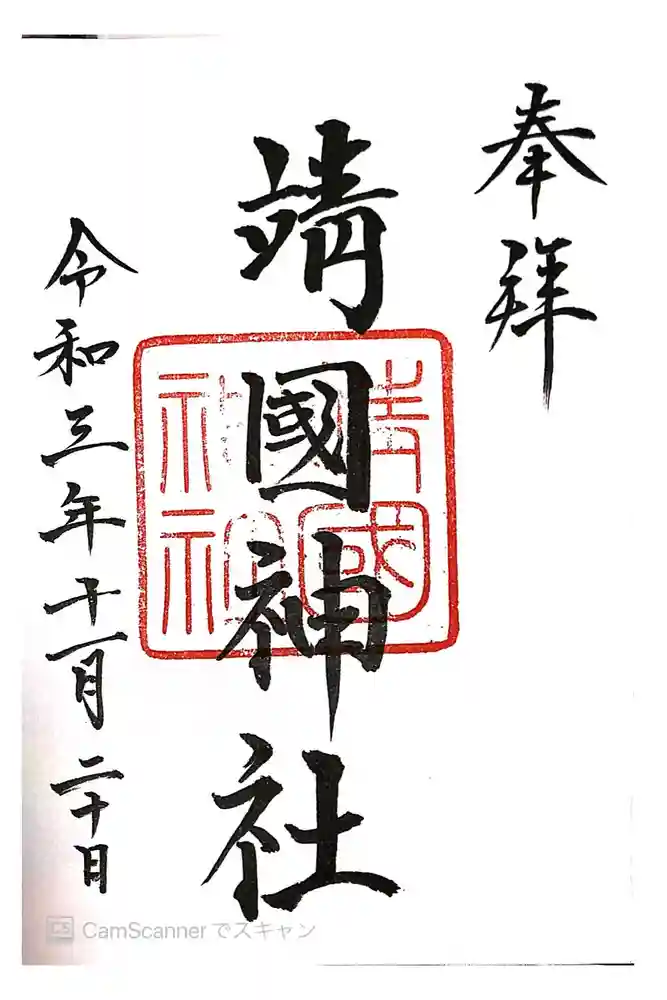 奉拝
靖國神社
令和三年十一月二十日
CS CamScannerでスキャン